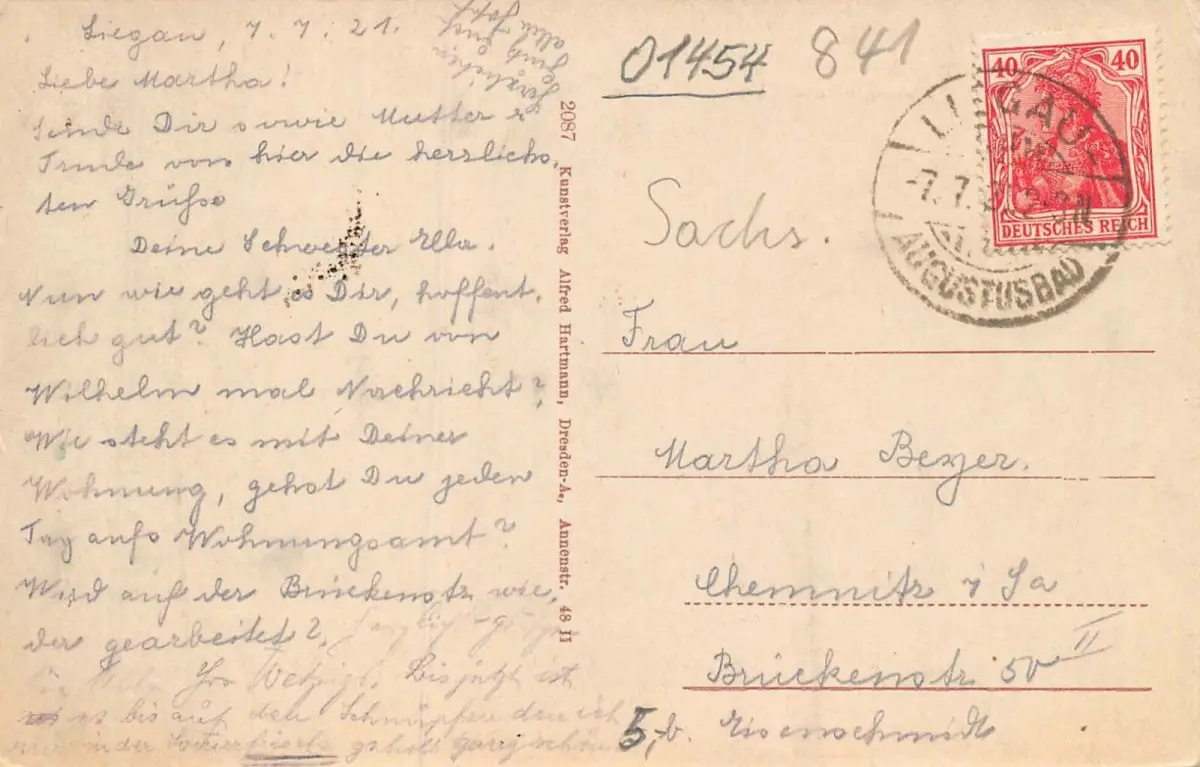 Liegau, 7. 7. 21.
Liebe Martha!
Sende Dir sowie Mutter &
Trude von hier die herzlichs-
ten Grüße
Deine Schwester Ella.
Nun wie geht es Dir, hoffent-
lich gut? Hast Du von
Wilhelm mal Nachricht?
Wie steht es mit Deiner
Wohnung, gehst Du jeden
Tag aufs Wohnungsamt?
Wird auf der Brückenstr. wie-
der gearbeitet?
Bis jetzt ist
es bis auf den Schnupfen den ich
in der Sommerfrische geholt ganz schön
2087 Kunstverlag Alfred Hartmann, Dresden-A., Annenstr. 48 II
01454 841
40 40
DEUTSCHES REICH
LIEGAU-
7. 7.
AUGUSTUSBAD
Sachs.
Frau
Martha Beyer.
Chemnitz i Sa
Brückenstr 50 II
5,- b. Eisenschmidt